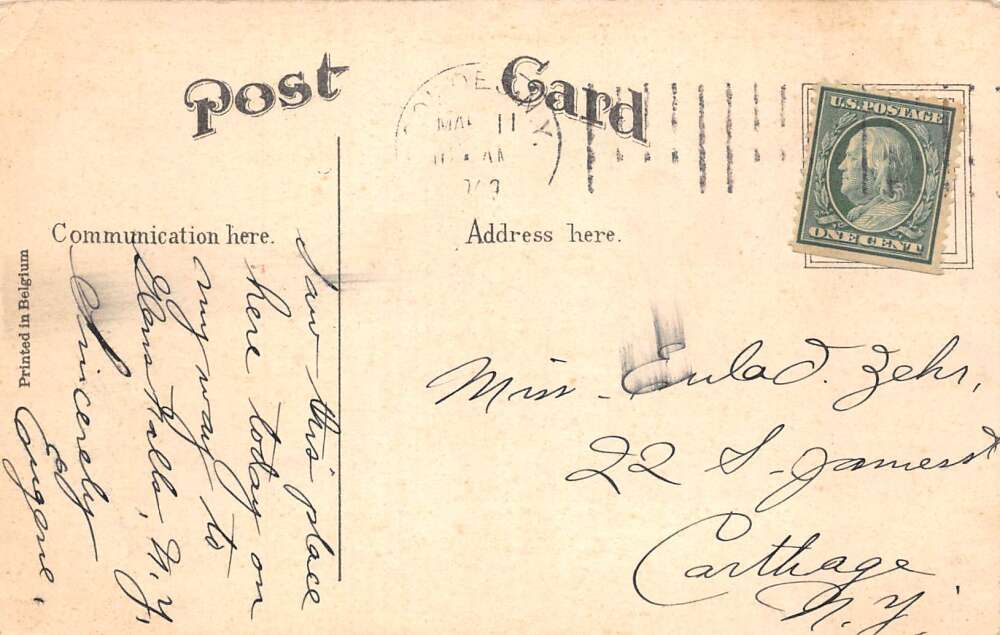 Post Card
MAR 11
AM
N.Y.
U.S. POSTAGE
ONE CENT
Communication here.
Address here.
Printed in Belgium
Saw this place
here today on
my way to
Glens Falls, N.Y.
Sincerely
Eugene.
Miss. Eula D. Zehr,
22 S-James St
Carthage
N.Y.